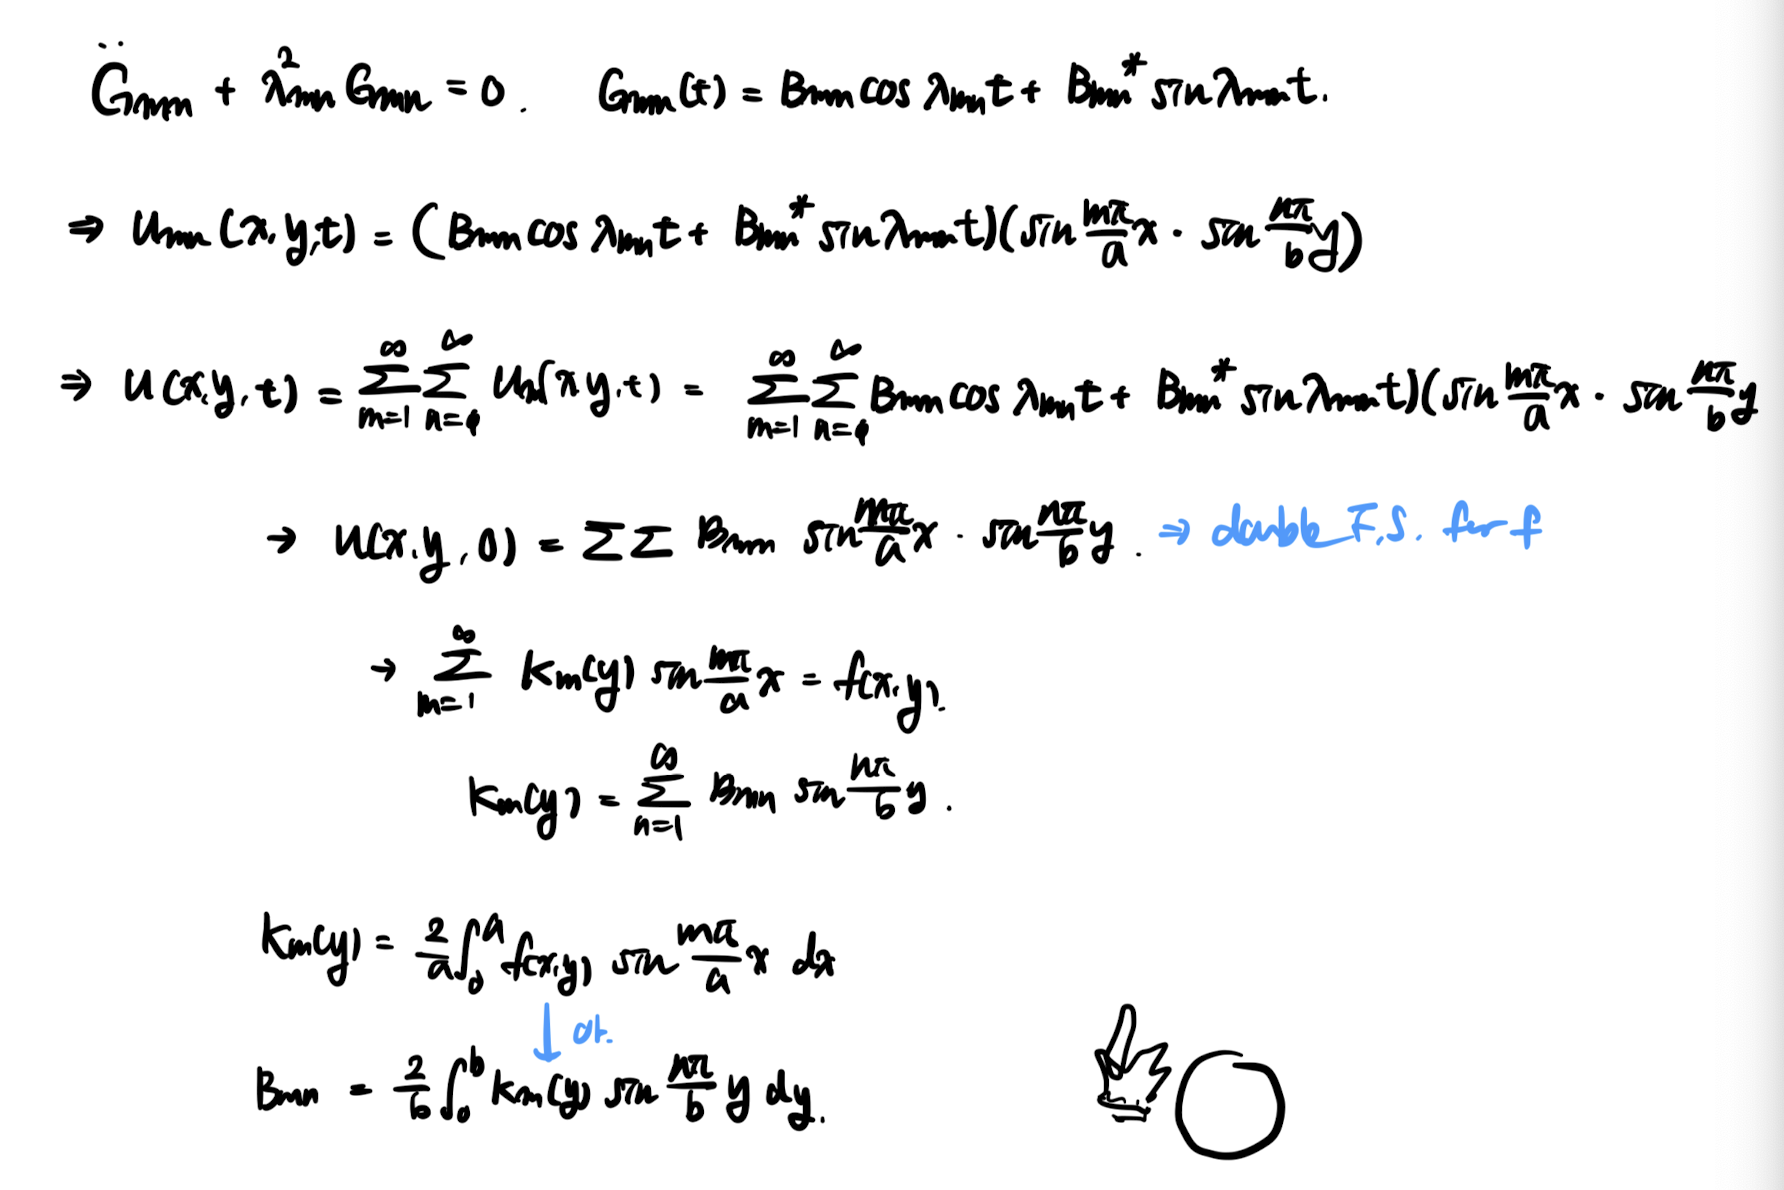 G̈mn + λ²mn Gmn = 0. Gmn(t) = Bmn cos λmn t + Bmn* sin λmn t.
⇒ Umn (x, y, t) = (Bmn cos λmn t + Bmn* sin λmn t)(sin mπ/a x · sin nπ/b y)
⇒ U(x, y, t) = ∞Σm=1 ∞Σn=1 Un(x y, t) = ∞Σm=1 ∞Σn=1 Bmn cos λmn t + Bmn* sin λmn t)(sin mπ/a x · sin nπ/b y
→ U(x, y, 0) = ΣΣ Bmn sin mπ/a x · sin nπ/b y. ⇒ double F.S. for f
→ ∞Σm=1 Km(y) sin mπ/a x = f(x, y).
Km(y) = ∞Σn=1 Bmn sin nπ/b y.
Km(y) = 2/a ∫₀ᵃ f(x, y) sin mπ/a x dx
↓
Bmn = 2/b ∫₀ᵇ Km(y) sin nπ/b y dy.